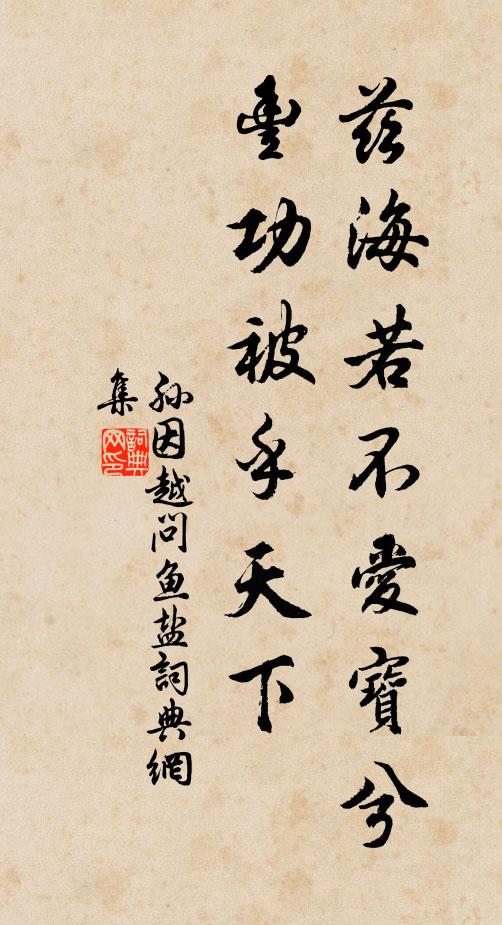 兹海若不愛寶兮
豐功被乎天下
孙因越問鱼盐詞典網
集
詞典网印